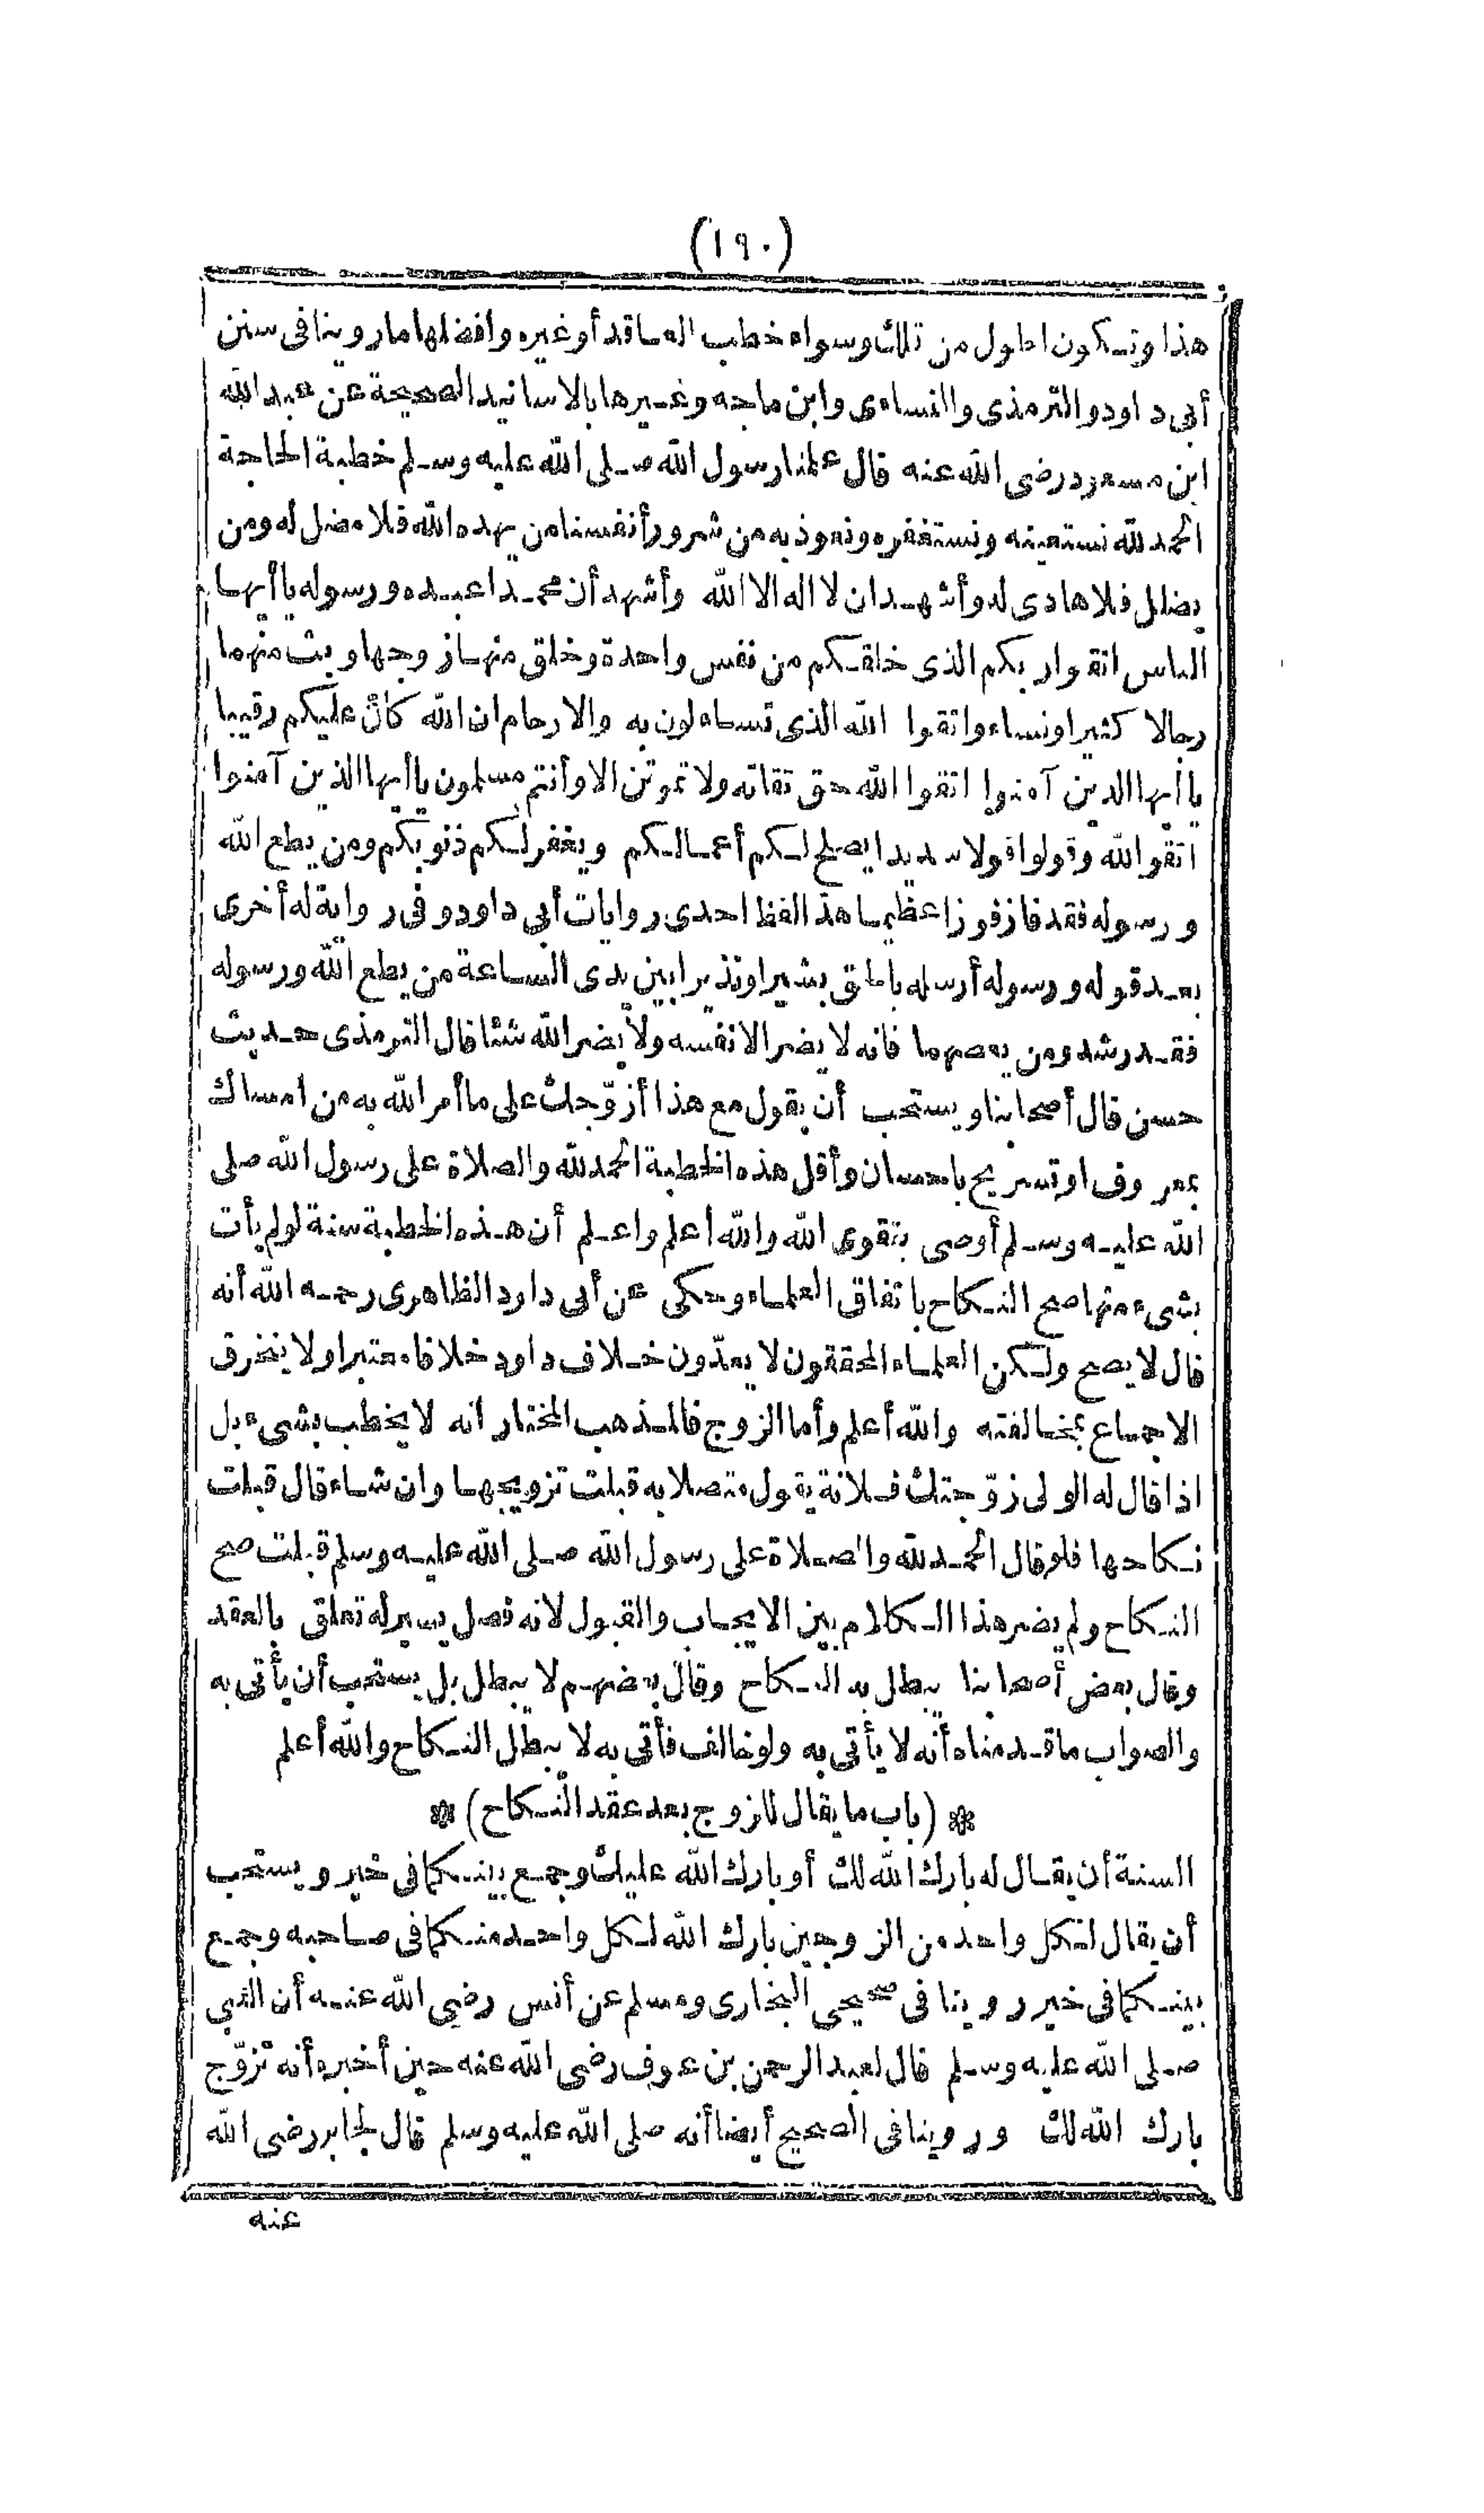 (١٩٠)
هذا وتكون اطول من تلك وسواء خطب العاقد أو غيره وافضلها ما روينا فى سنن
أبى داود والترمذى والنساءى وابن ماجه وغيرها بالاسانيد الصحيحة عن عبد الله
ابن مسعود رضى الله عنه قال علمنا رسول الله صلى الله عليه وسلم خطبة الحاجة
الحمد لله نستعينه ونستغفره ونعوذ به من شرور أنفسنا من يهده الله فلا مضل له ومن
يضلل فلا هادى له وأشهد ان لا اله الا الله وأشهد أن محمدا عبده ورسوله يا أيها
الناس اتقوا ربكم الذى خلقكم من نفس واحدة وخلق منها زوجها وبث منهما
رجالا كثيرا ونساء واتقوا الله الذى تساءلون به والارحام ان الله كان عليكم رقيبا
يا أيها الذين آمنوا اتقوا الله حق تقاته ولا تموتن الا وأنتم مسلمون يا أيها الذين آمنوا
اتقوا الله وقولوا قولا سديدا يصلح لكم أعمالكم ويغفر لكم ذنوبكم ومن يطع الله
ورسوله فقد فاز فوزا عظيما هذا لفظ احدى روايات أبى داود وفى رواية له أخرى
بعد قوله ورسوله أرسله بالحق بشيرا ونذيرا بين يدى الساعة من يطع الله ورسوله
فقد رشد ومن يعصهما فانه لا يضر الا نفسه ولا يضر الله شئا قال الترمذى حديث
حسن قال أصحابنا ويستحب أن يقول مع هذا أزوّجك على ما أمر الله به من امساك
بمعروف او تسريح باحسان وأقل هذه الخطبة الحمد لله والصلاة على رسول الله صلى
الله عليه وسلم أوصى بتقوى الله والله أعلم واعلم أن هذه الخطبة سنة لو لم يأت
بشىء منها صح النكاح باتفاق العلماء وحكى عن أبى داود الظاهرى رحمه الله أنه
قال لا يصح ولكن العلماء المحققون لا يعدّون خلاف داود خلافا معتبرا ولا ينخرق
الاجماع بمخالفته والله أعلم وأما الزوج فالمذهب المختار انه لا يخطب بشىء بل
اذا قال له الولى زوّجتك فلانة يقول متصلا به قبلت تزويجها وان شاء قال قبلت
نكاحها فلو قال الحمد لله والصلاة على رسول الله صلى الله عليه وسلم قبلت صح
النكاح ولم يضر هذا الكلام بين الايجاب والقبول لانه فصل يسير له تعلق بالعقد
وقال بعض أصحابنا يبطل به النكاح وقال بعضهم لا يبطل بل يستحب أن يأتى به
والصواب ما قدمناه أنه لا يأتى به ولو خالف فأتى به لا يبطل النكاح والله أعلم
* (باب ما يقال للزوج بعد عقد النكاح) *
السنة أن يقال له بارك الله لك أو بارك الله عليك وجمع بينكما فى خير ويستحب
أن يقال لكل واحد من الزوجين بارك الله لكل واحد منكما فى صاحبه وجمع
بينكما فى خير روينا فى صحيحى البخارى ومسلم عن أنس رضى الله عنه أن النبى
صلى الله عليه وسلم قال لعبد الرحمن بن عوف رضى الله عنه حين أخبره أنه تزوّج
بارك الله لك وروينا فى الصحيح أيضا أنه صلى الله عليه وسلم قال لجابر رضى الله
عنه